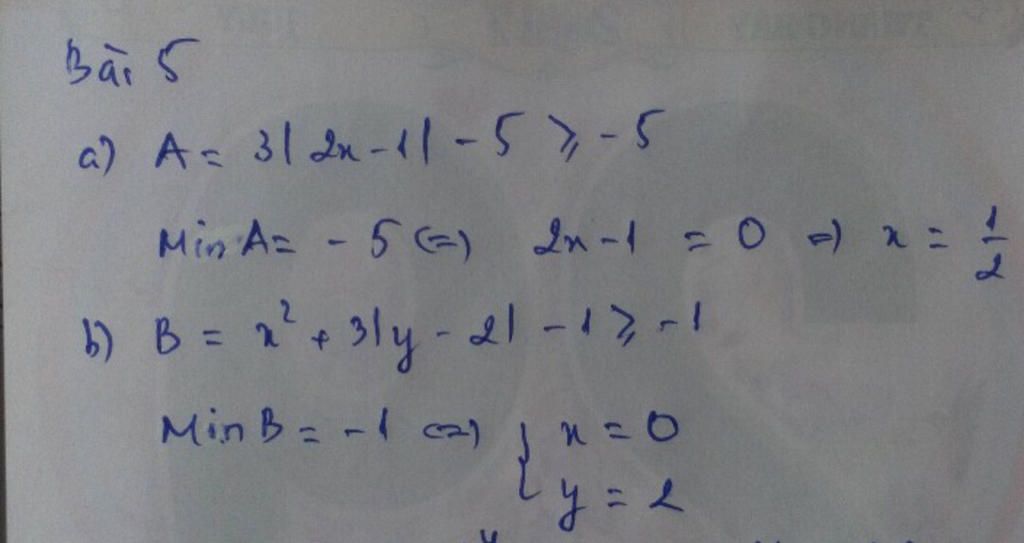 Bài 5
a) A = 3|2x-1| - 5 ⩾ -5
Min A = -5 <=> 2x-1 = 0 => x = 1/2
b) B = x² + 3|y-2| - 1 ⩾ -1
Min B = -1 <=> { x = 0
y = 2